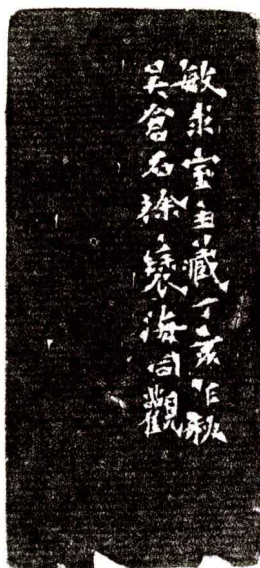 敏求室主藏丁亥乍秋
吴倉石徐襄海同觀